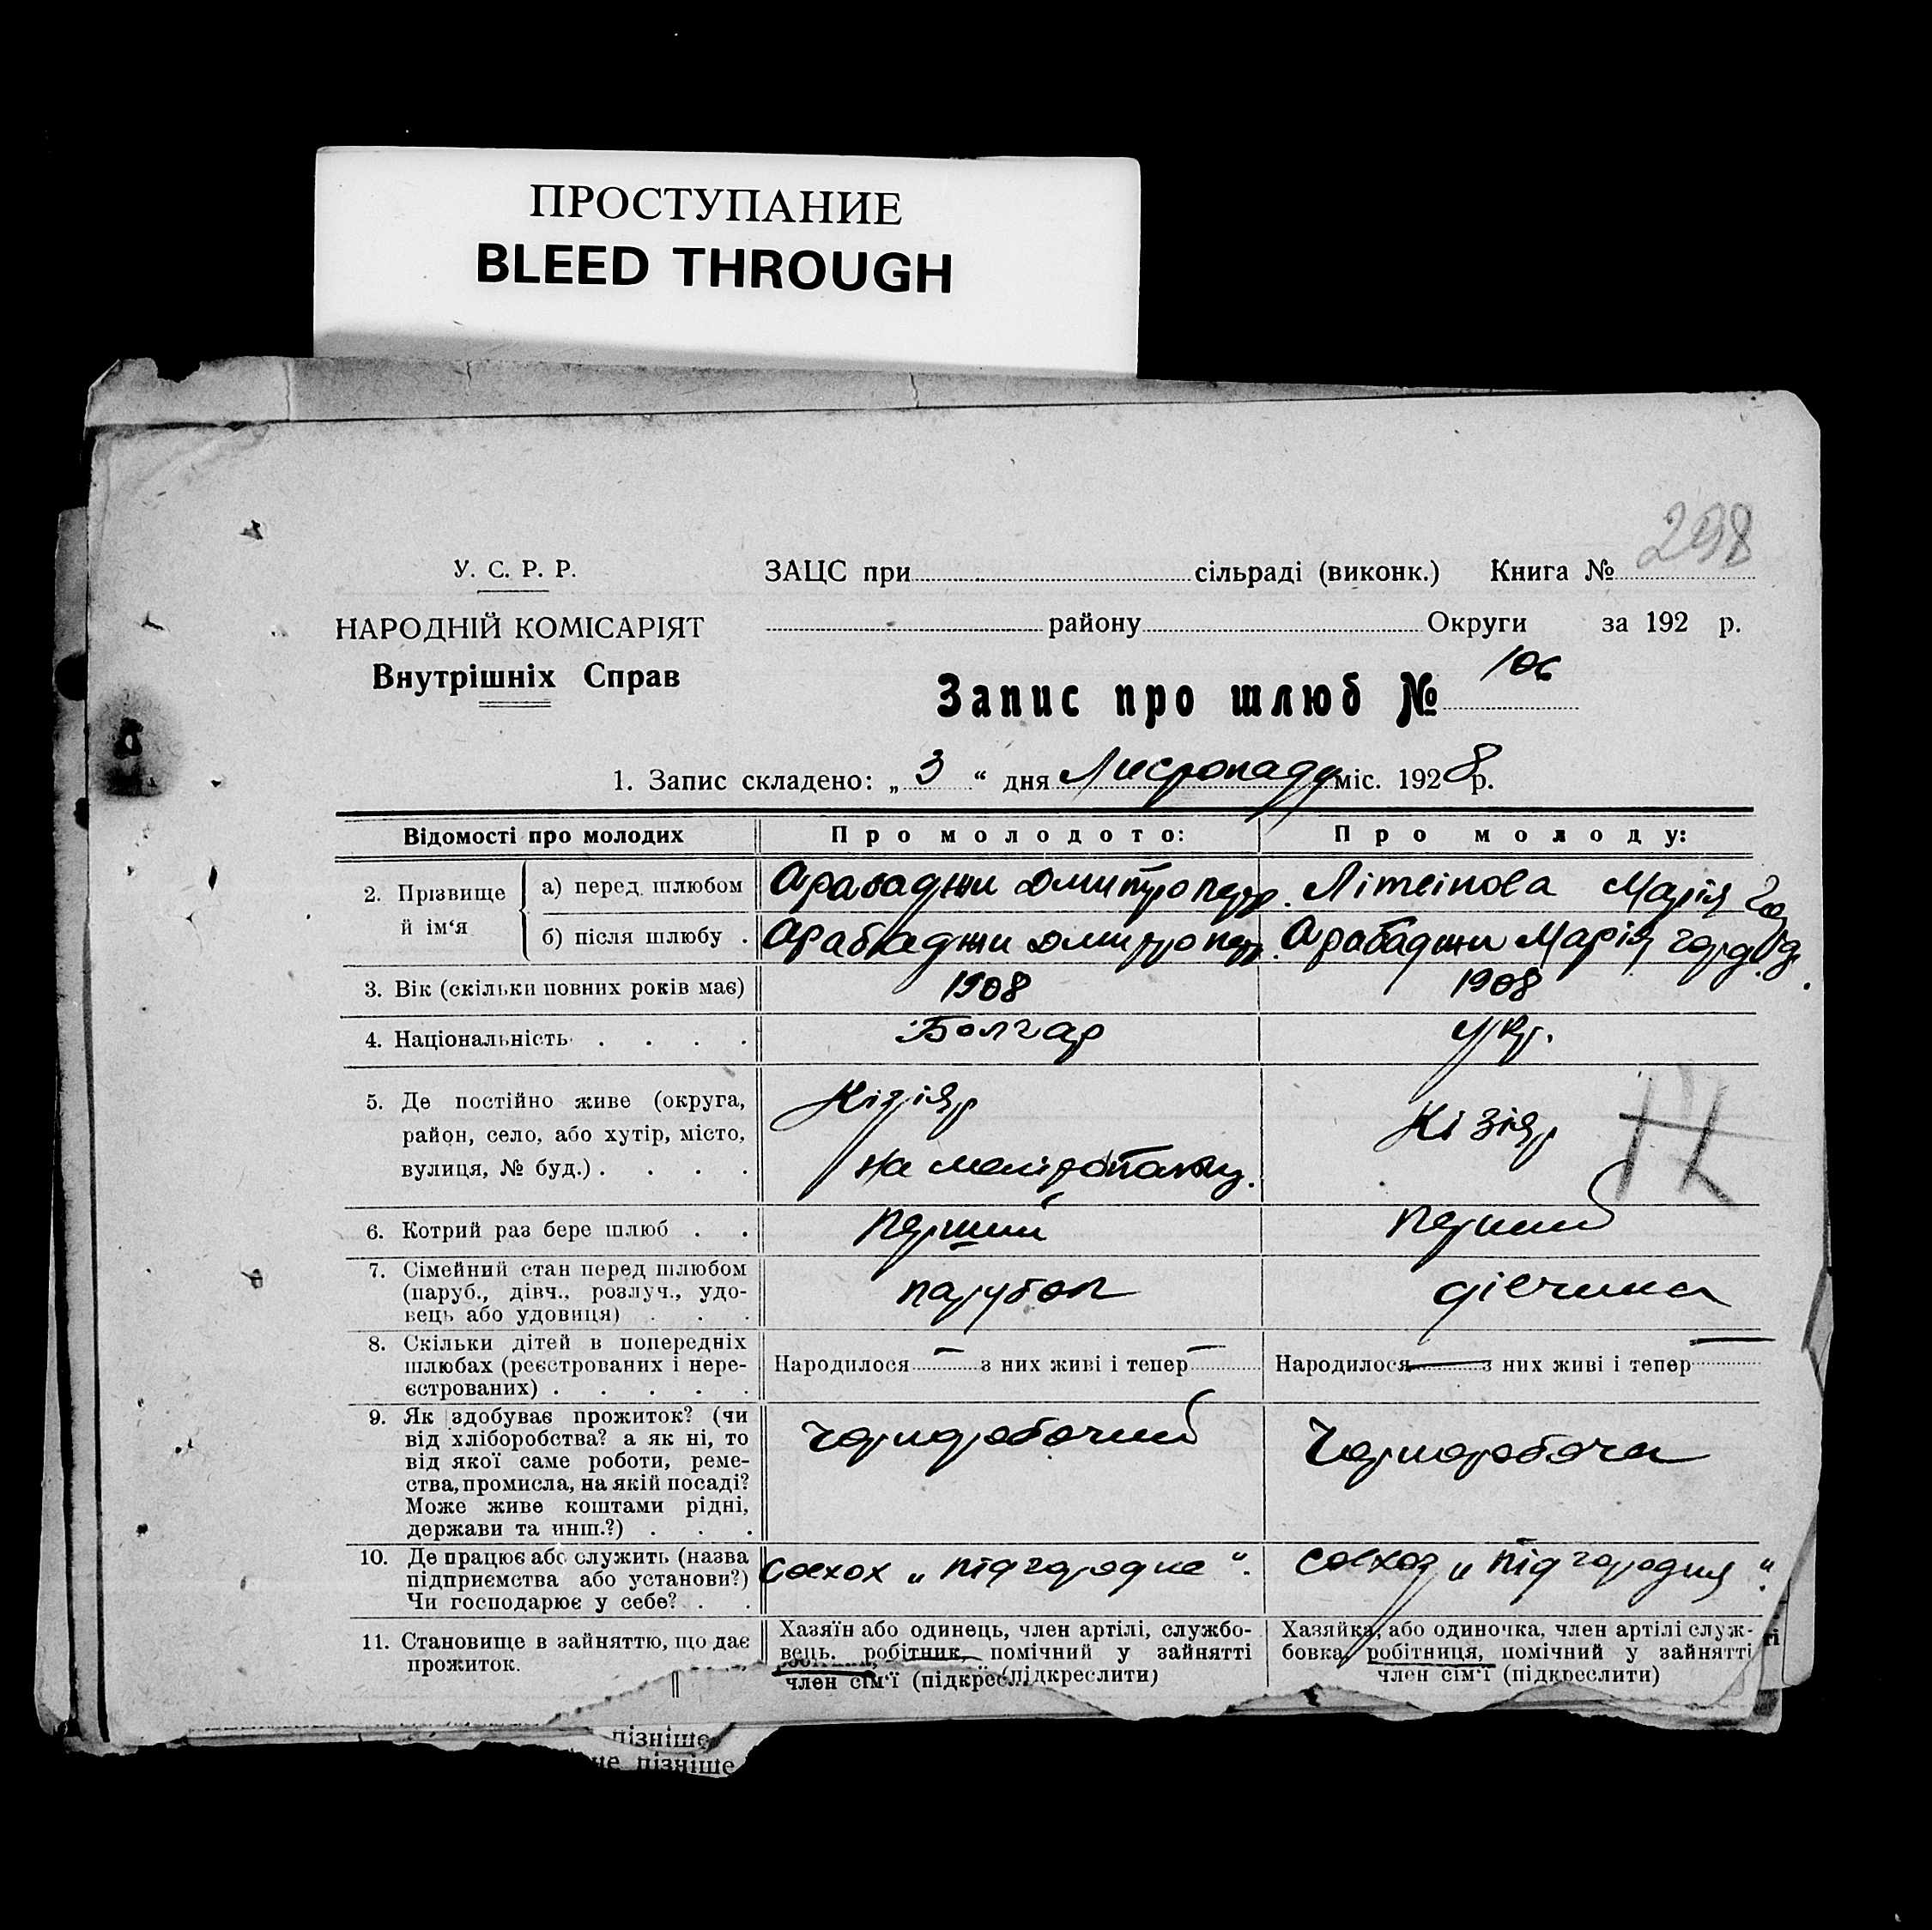 ПРОСТУПАНИЕ
BLEED THROUGH
298
У. С. Р. Р.
ЗАЦС при сільраді (виконк.) Книга №
НАРОДНІЙ КОМІСАРІЯТ
району Округи за 192 р.
Внутрішніх Справ
Запис про шлюб № 106
1. Запис складено: „ 3 “ дня Листопаду міс. 1928 р.
Відомості про молодих
Про молодого:
Про молоду:
2. Прізвище й ім‘я
а) перед шлюбом
Арабаджи Дмитро Петр.
Літвінова Марія
б) після шлюбу .
Арабаджи Дмитро Петр.
Арабаджи Марія
3. Вік (скільки повних років має)
1908
1908
4. Національність . . . .
Болгар
Укр.
5. Де постійно живе (округа,
район, село, або хутір, місто,
вулиця, № буд.) . . . .
Кізіяр
на
Кізіяр
6. Котрий раз бере шлюб . .
Перший
Перший
7. Сімейний стан перед шлюбом
(паруб., дівч., розлуч., удо-
вець або удовиця) . . .
парубок
дівчина
8. Скільки дітей в попередніх
шлюбах (реєстрованих і нере-
єстрованих) . . . . .
Народилося — з них живі і тепер —
Народилося — з них живі і тепер —
9. Як здобуває прожиток? (чи
від хліборобства? а як ні, то
від якої саме роботи, реме-
ства, промисла, на якій посаді?
Може живе коштами рідні,
держави та инш.?) . . .
Чорноробочий
Чорноробоча
10. Де працює або служить (назва
підприємства або установи?)
Чи господарює у себе? . .
Совхох „Підгородне“.
Совхоз „Підгородня“.
11. Становище в зайняттю, що дає
прожиток.
Хазяїн або одинець, член артілі, службо-
вець, робітник, помічний у зайнятті
член сім‘ї (підкрес
підкреслити)
Хазяйка, або одиночка, член артілі служ-
бовка, робітниця, помічний у зайнятті
член сім‘ї (підкреслити)
пізніше
не пізніше